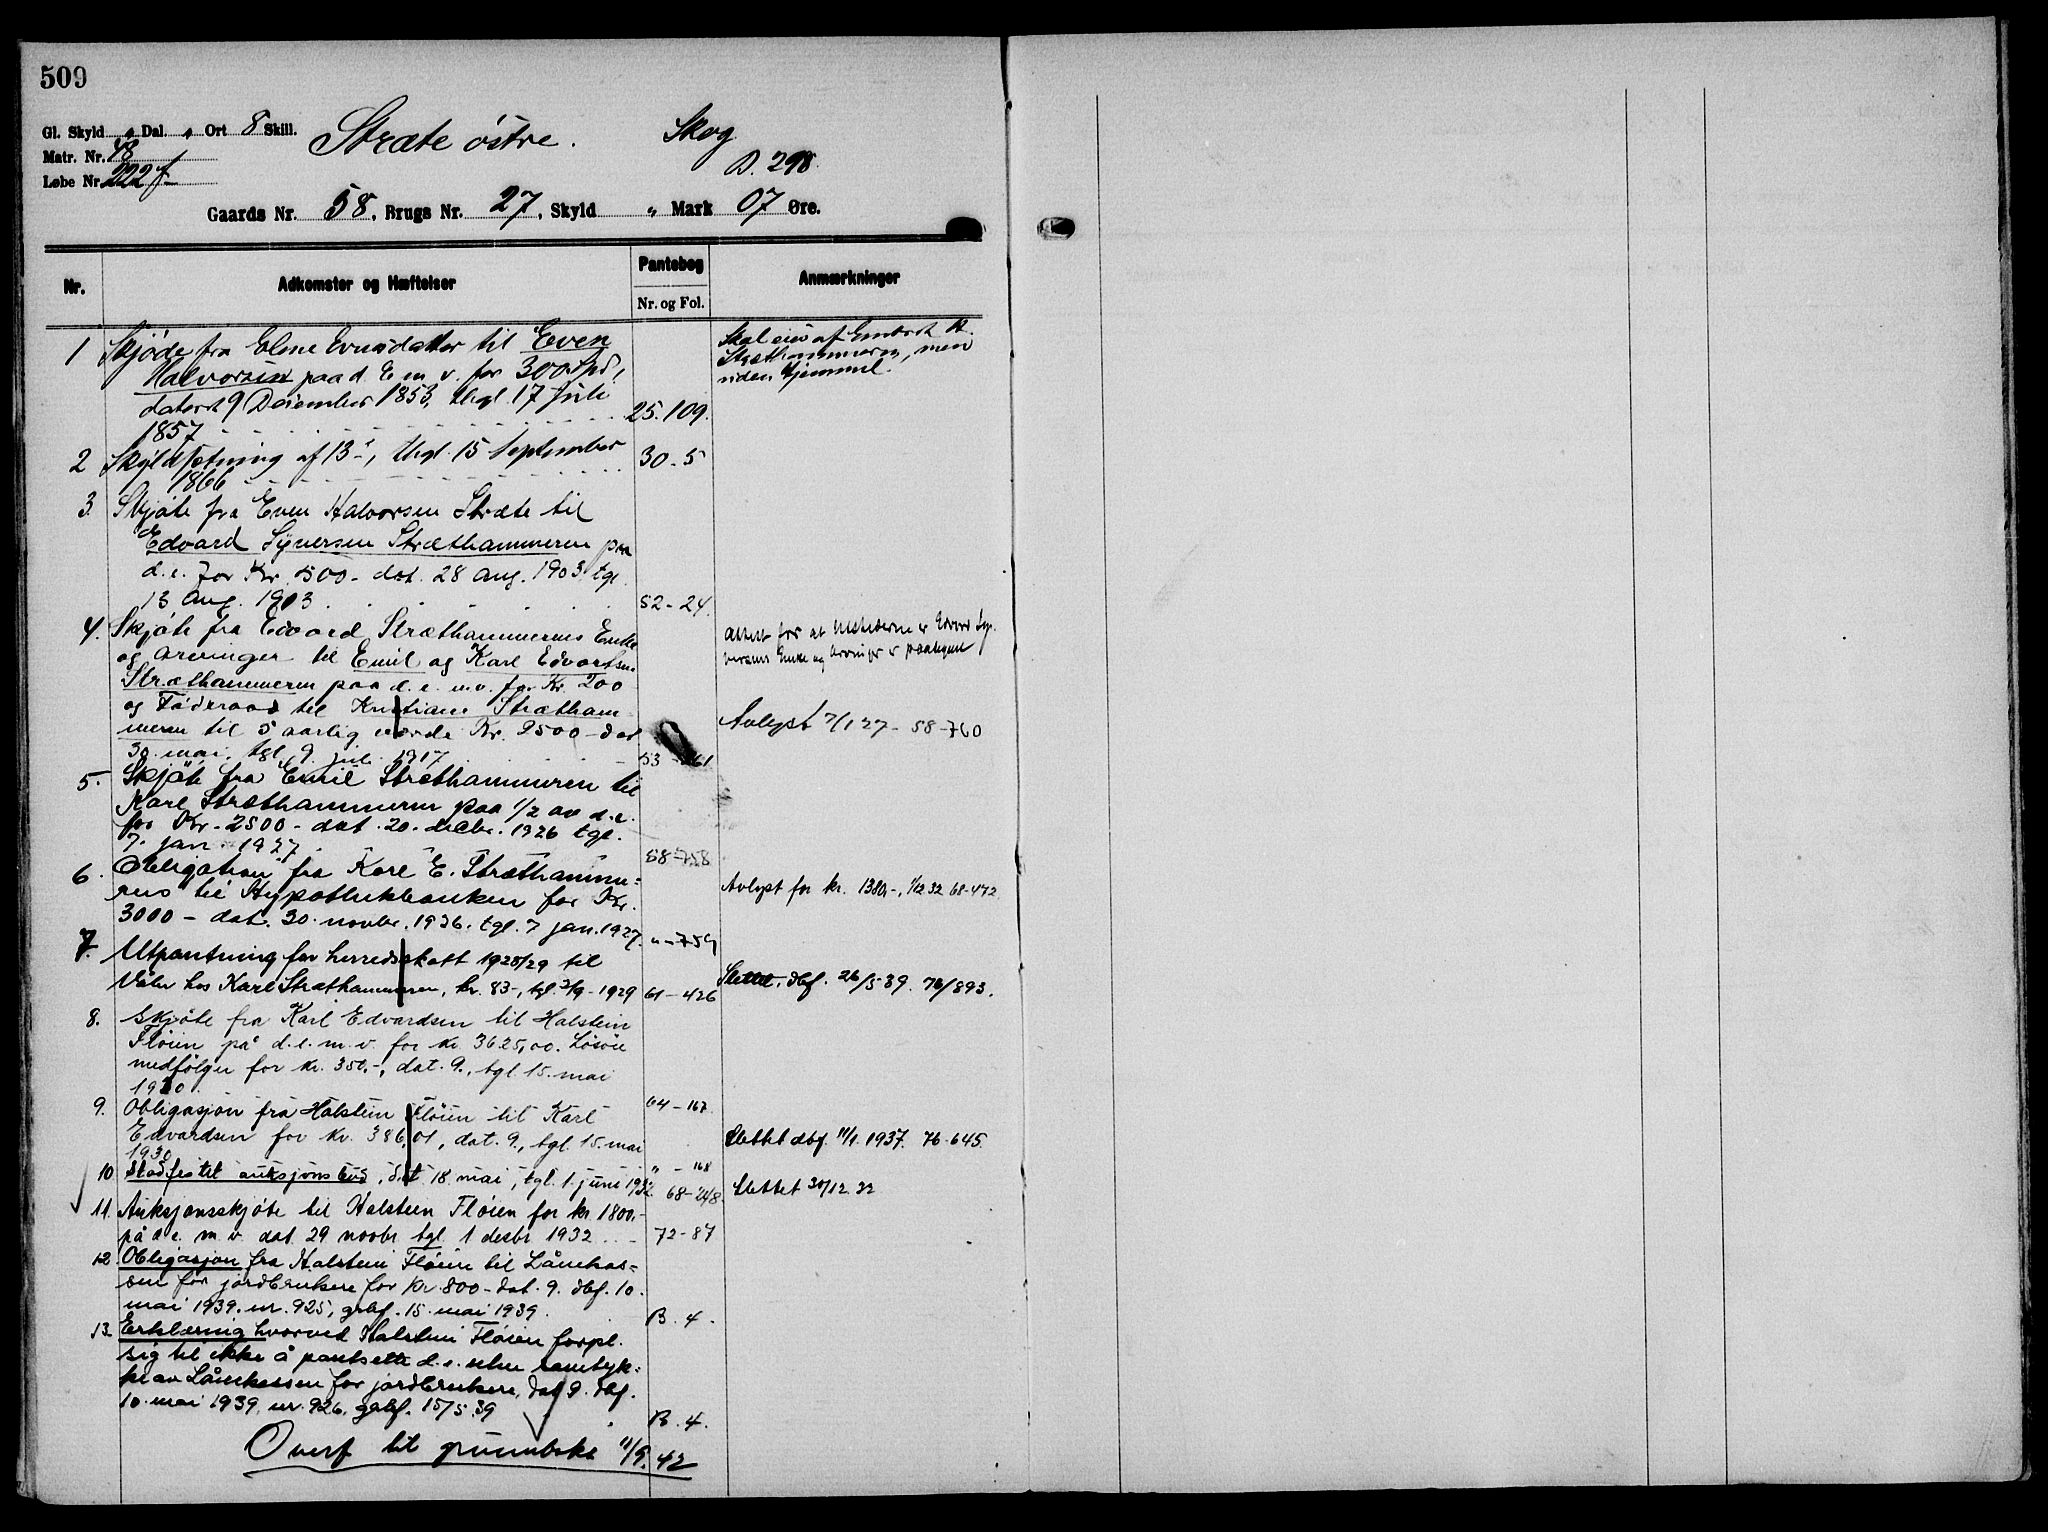 509
Gl. Skyld " Dal. " Ort 8 Skill.
Stræte østre.
Skog
Matr. Nr. 48
Løbe Nr. 222 f
D. 298.
Gaards Nr. 58, Brugs Nr. 27, Skyld " Mark 07 Øre.
Nr.
Adkomster og Hæftelser
Pantebog
Nr. og Fol.
Anmærkninger
1 Skjøde fra Eline Evensdatter til Even
Halvorsen paa d. E m. v. for 300 Spd,
datert 9 December 1853, thgl. 17 Juli
1857 25.109.
Skal eies af
Stræthammeren, men
uden Hjemmel.
2 Skyldsætning af 13-, thgl. 15 September
1866 30-5
3. Skjøte fra Even Halvorsen Stræte til
Edvard Syversen Stræthammeren paa
d.e. for Kr. 500- dat. 28 Aug. 1903 tgl.
13 Aug. 1913 52-24.
4. Skjøte fra Edvard Stræthammerens Enke
og arvinger til Emil og Karl Edvartsen
Stræthammeren paa d.e. m.v. for Kr. 200
og Føderaad til Kristiane Strætham-
meren til 5 aarlig værde Kr. 2500- dat
30. mai, tgl. 9. juli 1917. 53 - 161
Attest for at utstederne er Edvard Sy-
versens Enke og Arvinger er paategnet
Avlyst 7/1 27 - 58-760
5. Skjøte fra Emil Stræthammeren til
Karl Stræthammeren paa 1/2 av d.e.
for Kr. 2500- dat. 20. decbr. 1926 tgl.
7. jan. 1927 58-758
6. Obligation fra Karl E. Stræthamme=
rens til Hypothekbanken for Kr.
3000- dat. 30. novbr. 1926. tgl. 7 jan. 1927. "-759
Avlyst for kr. 1380,-, 1/12 32 68-472
7. Utpantning for herredsskatt 1928/29 til
Våler hos Karl Stræthammeren, kr. 83-, tgl. 2/9-1929 61-426
Slettet. dbf. 26/5-39. 78/893.
8. Skjøte fra Karl Edvardsen til Halstein
Fløien på d.e.m.v. for kr. 3625,00. Løsøre
medfølger for kr. 350,-, dat. 9., tgl. 15. mai
1930. 64-167.
9. Obligasjon fra Halstein Fløien til Karl
Edvardsen for kr. 386,01, dat. 9., tgl. 15. mai
1930 "-168
Slettet dbf. 11/1. 1937. 76-645.
10 Stadfestet auksjonsbud, dat 18. mai, tgl. 1. juni 1932 68-248.
Slettet 30/12. 32
11. Auksjonsskjøte til Halstein Fløien for kr. 1800,-
på d e. m. v. dat. 29 novbr tgl. 1 desbr 1932 72-87
12. Obligasjon fra Halstein Fløien til Lånekas=
sen for jordbrukere for Kr 800- dat. 9. dbf. 10.
mai 1939. nr. 925, grbf. 15. mai 1939. B. 4.
13. Erklæring hvorved Halstein Fløien forpl.
sig til ikke å pantsette d.e. uten samtyk=
ke av Lånekassen for jordbrukere, dat 9. dbf.
10. mai 1939, nr. 926, grbf. 15/5.39 B. 4.
Overf til grunnboka 11/9.42